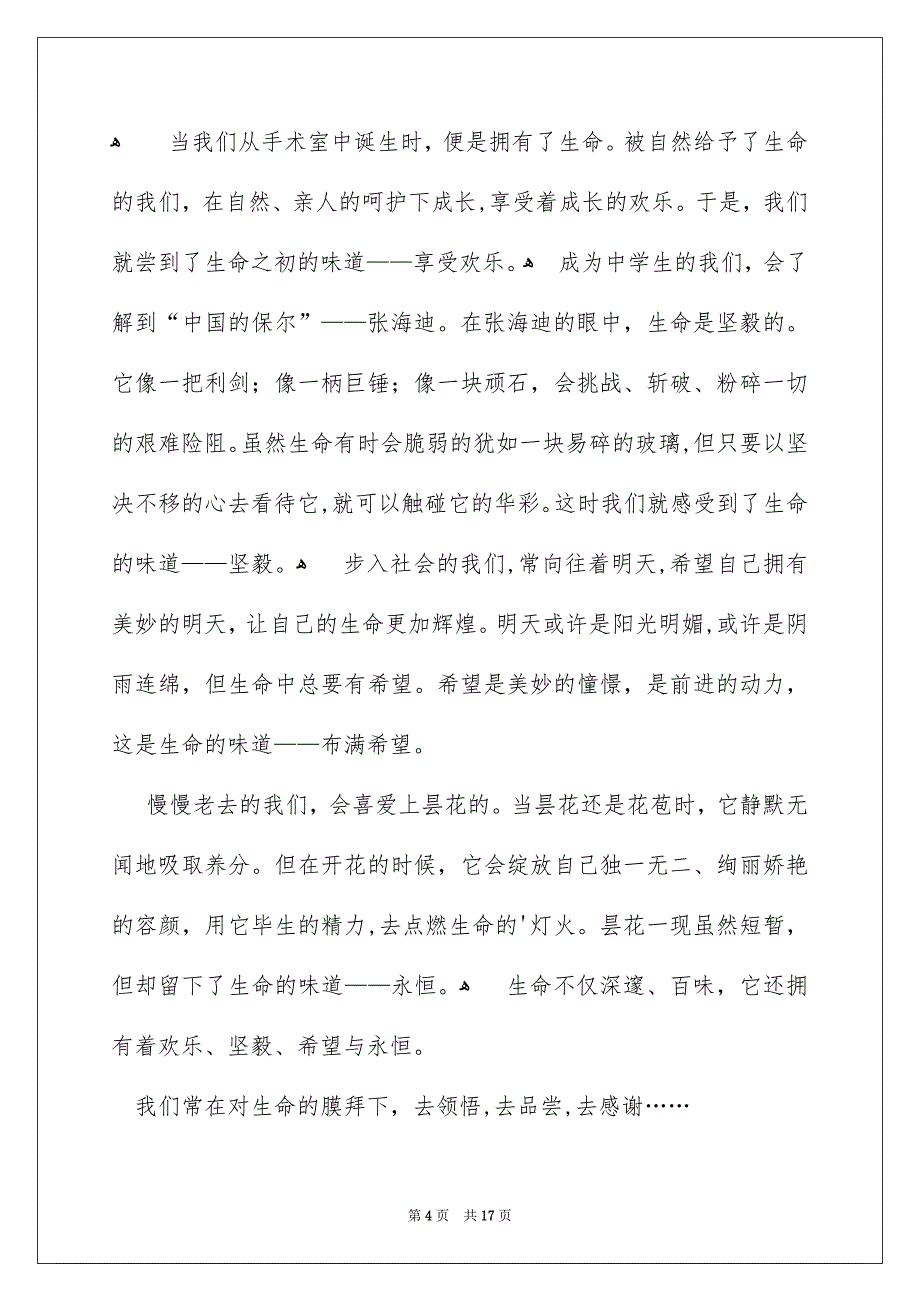 ﻫ 当我们从手术室中诞生时，便是拥有了生命。被自然给予了生命
的我们，在自然、亲人的呵护下成长,享受着成长的欢乐。于是，我们
就尝到了生命之初的味道——享受欢乐。ﻫ 成为中学生的我们，会了
解到“中国的保尔”——张海迪。在张海迪的眼中，生命是坚毅的。
它像一把利剑；像一柄巨锤；像一块顽石，会挑战、斩破、粉碎一切
的艰难险阻。虽然生命有时会脆弱的犹如一块易碎的玻璃,但只要以坚
决不移的心去看待它,就可以触碰它的华彩。这时我们就感受到了生命
的味道——坚毅。ﻫ 步入社会的我们,常向往着明天,希望自己拥有
美妙的明天，让自己的生命更加辉煌。明天或许是阳光明媚,或许是阴
雨连绵，但生命中总要有希望。希望是美妙的憧憬，是前进的动力，
这是生命的味道——布满希望。
慢慢老去的我们，会喜爱上昙花的。当昙花还是花苞时，它静默无
闻地吸取养分。但在开花的时候，它会绽放自己独一无二、绚丽娇艳
的容颜，用它毕生的精力,去点燃生命的'灯火。昙花一现虽然短暂，
但却留下了生命的味道——永恒。ﻫ 生命不仅深邃、百味，它还拥
有着欢乐、坚毅、希望与永恒。
我们常在对生命的膜拜下，去领悟,去品尝,去感谢……
第4页 共17页